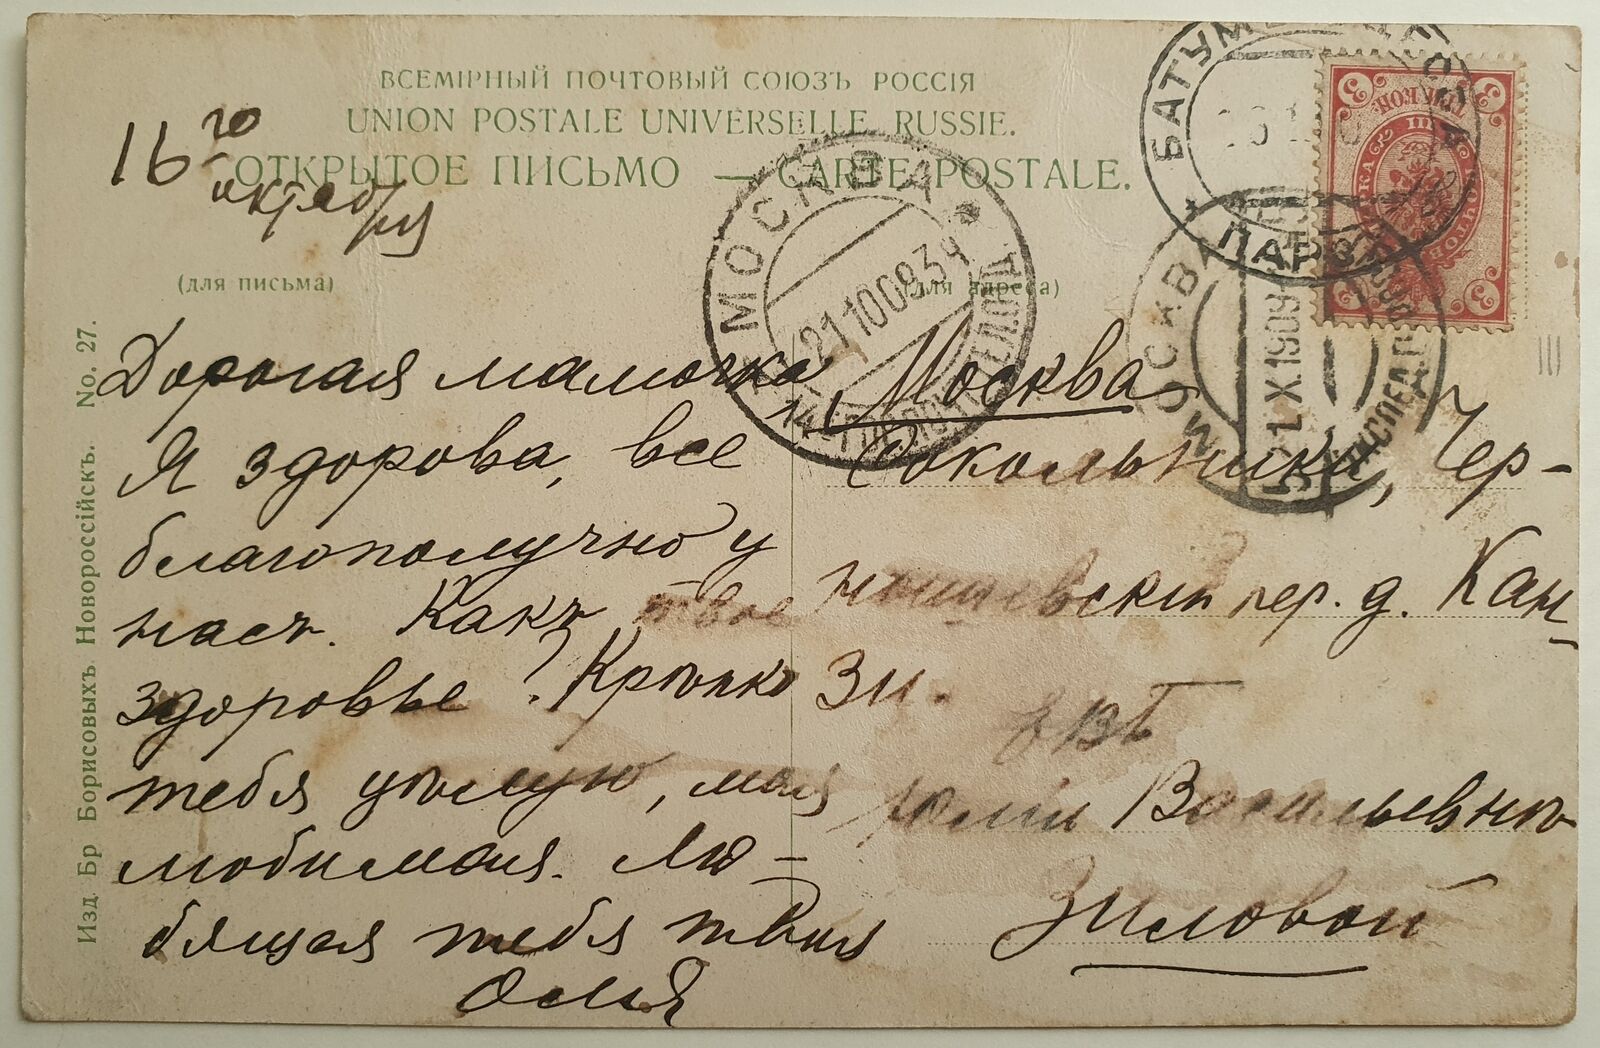 ВСЕМІРНЫЙ ПОЧТОВЫЙ СОЮЗЪ РОССІЯ
UNION POSTALE UNIVERSELLE. RUSSIE.
ОТКРЫТОЕ ПИСЬМО — CARTE POSTALE.
(для письма)
(для адреса)
16го
октября
Дорогая мамочка,
Я здорова, все
благополучно у
насъ. Какъ твое
здоровье? Крѣпко
тебя цѣлую, моя
любимая. Лю-
бящая тебя твоя
Оля
Москва
Сокольники, Чер-
пер. д. Кан-
зи.
Юліи Васильевнѣ
Зиловой
Изд. Бр Борисовыхъ Новороссійскъ. No. 27.
МОСКВА
21 10 09
БАТУМ
ПАРОХ
МОСКВА
X.1909
ЭКСПЕД.
3
3
3